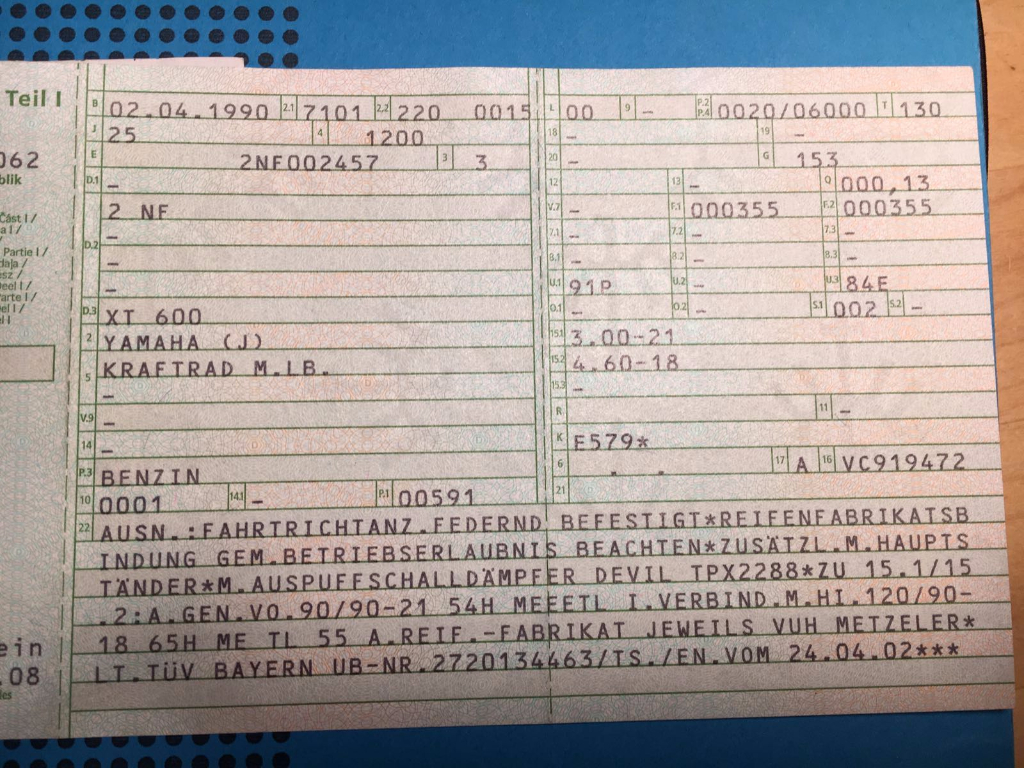 Teil I
B 02.04.1990 2.1 7101 2.2 220 0015 L 00 9 - P.2 P.4 0020/06000 T 130
J 25 4 1200 18 - 19 -
062 E 2NF002457 3 3 20 - G 153
blik D.1 - 12 - 13 - Q 000,13
2 NF V.7 - F.1 000355 F.2 000355
Část I /
D.2 - 7.1 - 7.2 - 7.3 -
Partie I /
- 8.1 - 8.2 - 8.3 -
Deel I /
- U.1 91P U.2 - U.3 84E
Parte I /
D.3 XT 600 O.1 - O.2 - S.1 002 S.2 -
2 YAMAHA (J) 15.1 3.00-21
5 KRAFTRAD M.LB. 15.2 4.60-18
- 15.3 -
V.9 - R 11 -
14 - K E579*
P.3 BENZIN 6 . . 17 A 16 VC919472
10 0001 14.1 - P.1 00591 21
22 AUSN.:FAHRTRICHTANZ.FEDERND BEFESTIGT*REIFENFABRIKATSB
INDUNG GEM.BETRIEBSERLAUBNIS BEACHTEN*ZUSÄTZL.M.HAUPTS
TÄNDER*M.AUSPUFFSCHALLDÄMPFER DEVIL TPX2288*ZU 15.1/15
.2:A.GEN.VO.90/90-21 54H MEEETL I.VERBIND.M.HI.120/90-
18 65H ME TL 55 A.REIF.-FABRIKAT JEWEILS VUH METZELER*
ein
LT.TÜV BAYERN UB-NR.2720134463/TS./EN.VOM 24.04.02***
.08